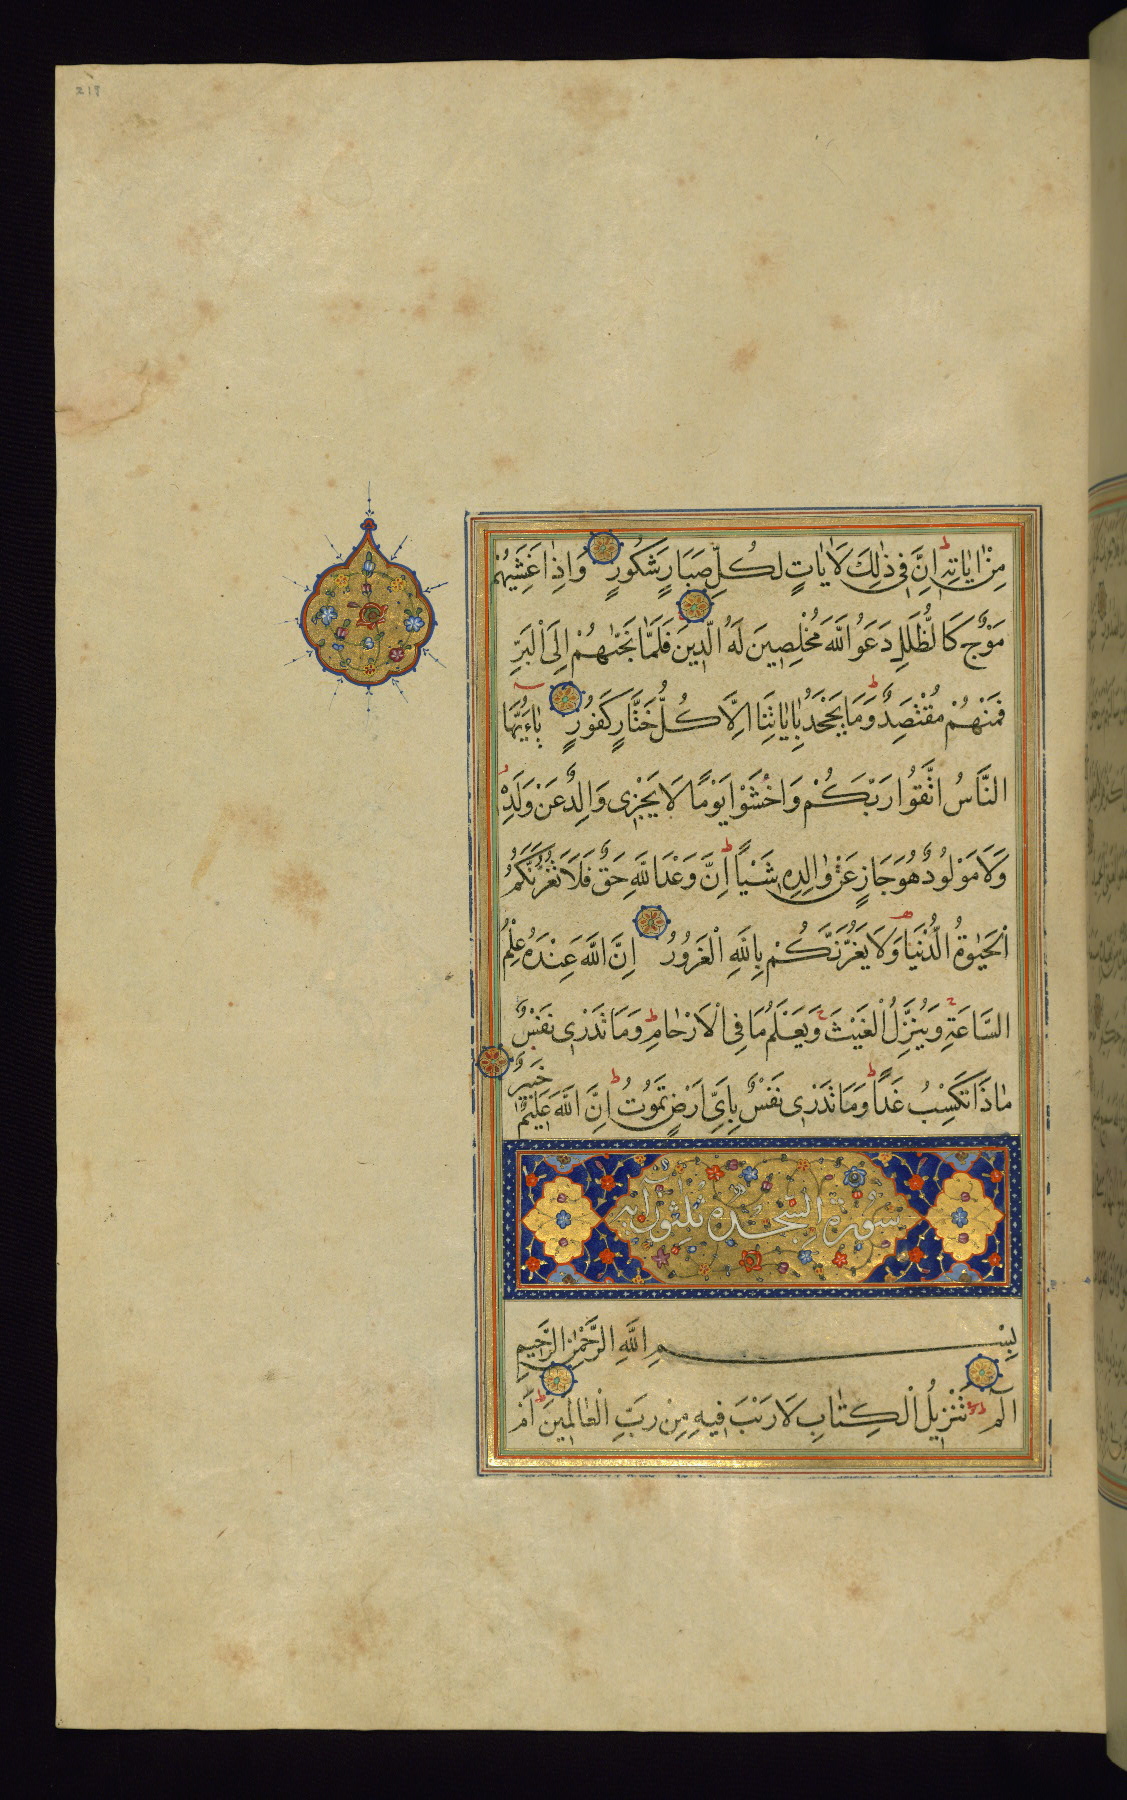 218
مِنْ اٰيَاتِهِ اِنَّ فِي ذٰلِكَ لَاٰيَاتٍ لِكُلِّ صَبَّارٍ شَكُورٍ وَاِذَا غَشِيَهُمْ
مَوْجٌ كَالظُّلَلِ دَعَوُا اللّٰهَ مُخْلِصِينَ لَهُ الدِّينَ فَلَمَّا نَجّٰيهُمْ اِلَى الْبَرِّ
فَمِنْهُمْ مُقْتَصِدٌ وَمَا يَجْحَدُ بِاٰيَاتِنَا اِلَّا كُلُّ خَتَّارٍ كَفُورٍ يَاءَيُّهَا
النَّاسُ اتَّقُوا رَبَّكُمْ وَاخْشَوْا يَوْمًا لَا يَجْزِي وَالِدٌ عَنْ وَلَدِهِ
وَلَا مَوْلُودٌ هُوَ جَازٍ عَنْ وَالِدِهِ شَيْـًٔا اِنَّ وَعْدَ اللّٰهِ حَقٌّ فَلَا تَغُرَّنَّكُمُ
الْحَيٰوةُ الدُّنْيَا وَلَا يَغُرَّنَّكُمْ بِاللّٰهِ الْغَرُورُ اِنَّ اللّٰهَ عِنْدَهُ عِلْمُ
السَّاعَةِ وَيُنَزِّلُ الْغَيْثَ وَيَعْلَمُ مَا فِي الْاَرْحَامِ وَمَا تَدْرِي نَفْسٌ
مَاذَا تَكْسِبُ غَدًا وَمَا تَدْرِي نَفْسٌ بِاَيِّ اَرْضٍ تَمُوتُ اِنَّ اللّٰهَ عَلِيمٌ خَبِيرٌ
سورة السجدة ثلثون آية
بِسْمِ اللّٰهِ الرَّحْمٰنِ الرَّحِيمِ
الٓمٓ تَنْزِيلُ الْكِتَابِ لَا رَيْبَ فِيهِ مِنْ رَبِّ الْعَالَمِينَ اَمْ